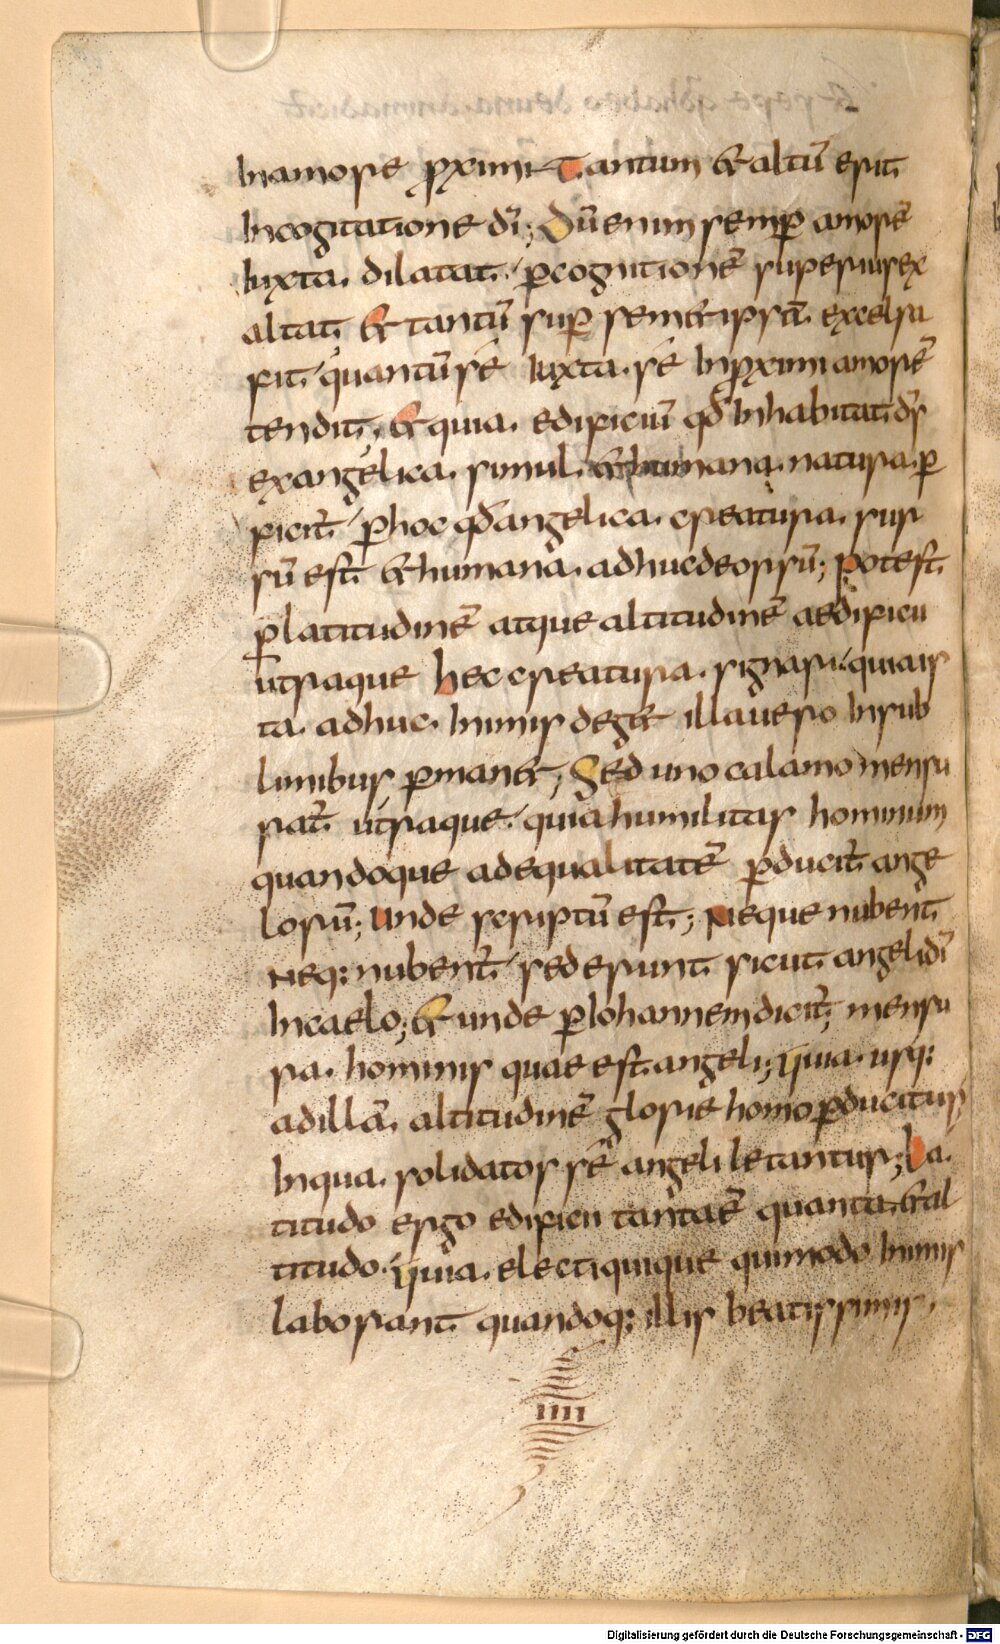 Inamore p̲ximi Tantum et altū erit
Incogitatione dī; Dū enim semp̲ amorē
Iuxta. dilatat. p̲cognitionē superius ex
altat. et tantū sup̲ semetipsū excelsa
fit quantū sē Iuxta. sē Inp̲ximi amorē
tendit. et quia. edificiū qđ Inhabitat dr̄
exangelica. simul. et humana. natura. p̲
ficit̄ p̲hoc qđ angelica. creatura. sur
sū est. et humana. adhuc deorsū; potest.
p̲ latitudinē atque altitudinē aedificii
utraque hec creatura. signari. quia is
ta. adhuc. Inimis deget illa uero Insub
limibus p̲manet; Sed uno calamo mensu
rat̄ utraque. quia humilitas hominum
quandoque adequalitatē p̲ducit̄ ange
lorū; Unde scriptū est; Neque nubent̄
Neq: nubent̄ sed erunt sicut angeli dī
Incaelo; et unde p̲Iohannem dicit̄; mensu
ra. hominis quae est. angeli; Quia. usq:
adillā. altitudinē glorie homo p̲ducitur
Inqua. solidatos sē angeli letantur; La.
titudo ergo edificii tanta ē quanta. et al
titudo. Quia. electi quique qui modo Inimis
laborant quandoq: illis beatissimis,
IIII
Digitalisierung gefördert durch die Deutsche Forschungsgemeinschaft - DFG